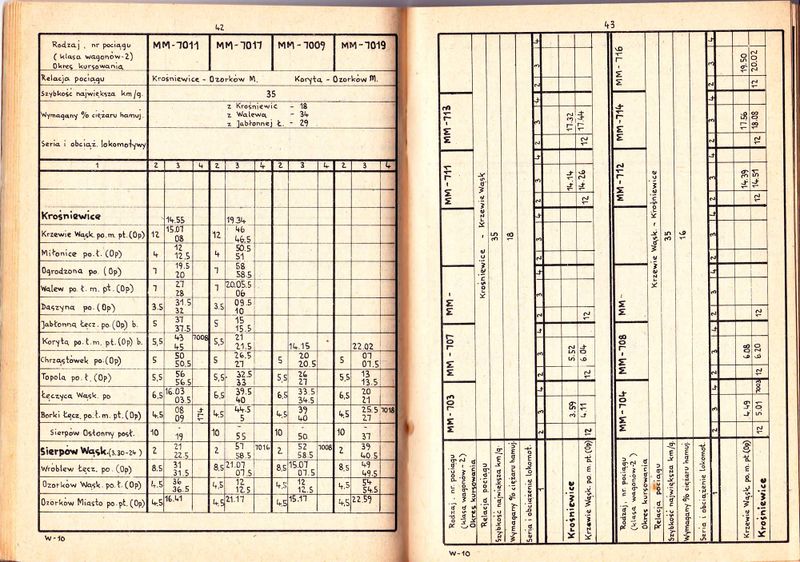 42
Rodzaj, nr pociągu
(klasa wagonów-2)
Okres kursowania
MM-7011 MM-7017 MM-7009 MM-7019
Relacja pociągu Krośniewice - Ozorków M. Koryta - Ozorków M.
Szybkość największa km/g. 35
Wymagany % ciężaru hamuj.
z Krośniewic - 18
z Walewa - 34
z Jabłonnej Ł. - 29
Seria i obciąż. lokomotywy
1 2 3 4 2 3 4 2 3 4 2 3 4
Krośniewice 14.55 19.34
Krzewie Wąsk. po. m. pt. (Op) 12 15.07 08 12 46 46.5
Miłonice po. ł. (Op) 4 12 12.5 4 50.5 51
Ogrodzona po. (Op) 7 19.5 20 7 58 58.5
Walew po. ł. m. pt. (Op) 7 27 28 7 20.05.5 06
Daszyna po. (Op) 3.5 31.5 32 3.5 09.5 10
Jabłonna Łęcz. po. (Op) b. 5 37 37.5 5 15 15.5
Koryta po. ł. m. pt. (Op) b. 5,5 43 45 7008 5,5 21 21.5 14.15 22.02
Chrząstówek po. (Op) 5 50 50.5 5 26.5 27 5 20 20.5 5 07 07.5
Topola po. ł. (Op) 5,5 56 56.5 5,5 32.5 33 5,5 26 27 5,5 13 13.5
Łęczyca Wąsk. po 6,5 16.03 03.5 6,5 39.5 40 6,5 33.5 34.5 6,5 20 21
Borki Łęcz. po. ł. m. pt. (Op) 4,5 08 09 174 4,5 44.5 5 4,5 39 40 4,5 25.5 27 7018
Sierpów Osłonny post. 10 - 19 10 - 55 10 - 50 10 - 37
Sierpów Wąsk. (3.30-24) 2 21 22.5 2 57 58.5 7014 2 52 58.5 7008 2 39 40.5
Wróblew Łęcz. po. (Op) 8.5 31 31.5 8.5 21.07 07.5 8.5 15.07 07.5 8.5 49 49.5
Ozorków Wąsk. po. ł. (Op) 4,5 36 36.5 4,5 12 12.5 4,5 12 12.5 4,5 54 54.5
Ozorków Miasto po. pt. (Op) 4,5 16.41 4,5 21.17 4,5 15.17 4,5 22.59
W-10
43
Rodzaj, nr pociągu
(klasa wagonów-2)
Okres kursowania
MM-703 MM-707 MM- MM-711 MM-713
Relacja pociągu Krośniewice - Krzewie Wąsk
Szybkość największa km/g 35
Wymagany % ciężaru hamuj. 18
Seria i obciążenie lokomot.
1 2 3 4 2 3 4 2 3 4 2 3 4 2 3 4
Krośniewice 3.59 5.52 14.14 17.32
Krzewie Wąsk. po. m. pt (Op) 12 4.11 12 6.04 12 12 14.26 12 17.44
Rodzaj, nr pociągu
(klasa wagonów-2)
Okres kursowania
MM-704 MM-708 MM- MM-712 MM-714 MM-716
Relacja pociągu Krzewie Wąsk. - Krośniewice
Szybkość największa km/g 35
Wymagany % ciężaru hamuj 16
Seria i obciążenie lokomot.
1 2 3 4 2 3 4 2 3 4 2 3 4 2 3 4 2 3 4
Krzewie Wąsk. po. m. pt (Op) 4.49 6.08 14.39 17.56 19.50
Krośniewice 12 5.01 12 6.20 12 12 14.51 12 18.08 12 20.02
W-10